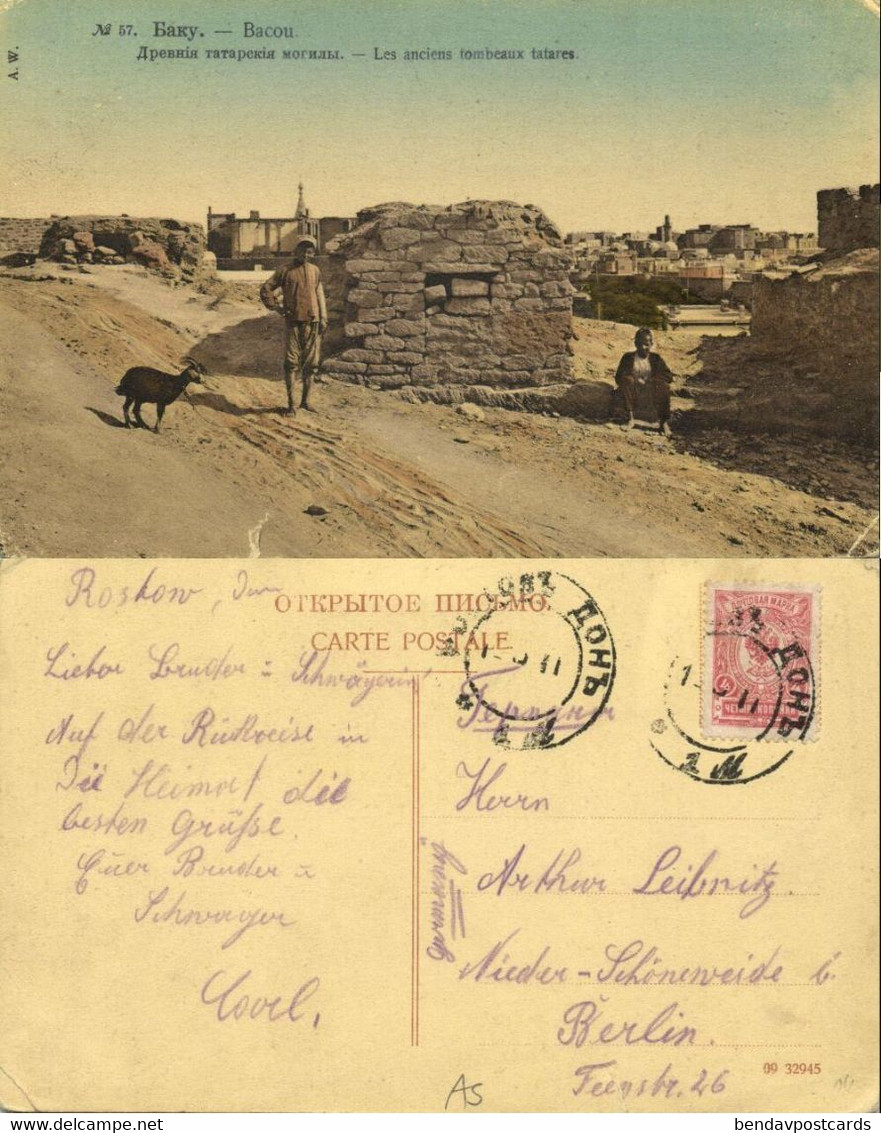 № 57. Баку. — Bacou.
Древнія татарскія могилы. — Les anciens tombeaux tatares.
A. W.
ОТКРЫТОЕ ПИСЬМО.
CARTE POSTALE.
Roskow, Don
Lieber Bruder u Schwägerin!
Auf der Rückreise in
Die Heimat die
besten Grüße.
Euer Bruder u
Schwager
Carl,
ДОНЪ
ДОНЪ
Германія
Herrn
Arthur Leibnitz.
Germany
Nieder-Schöneweide b.
Berlin.
26
09 32945
AS
bendavpostcards